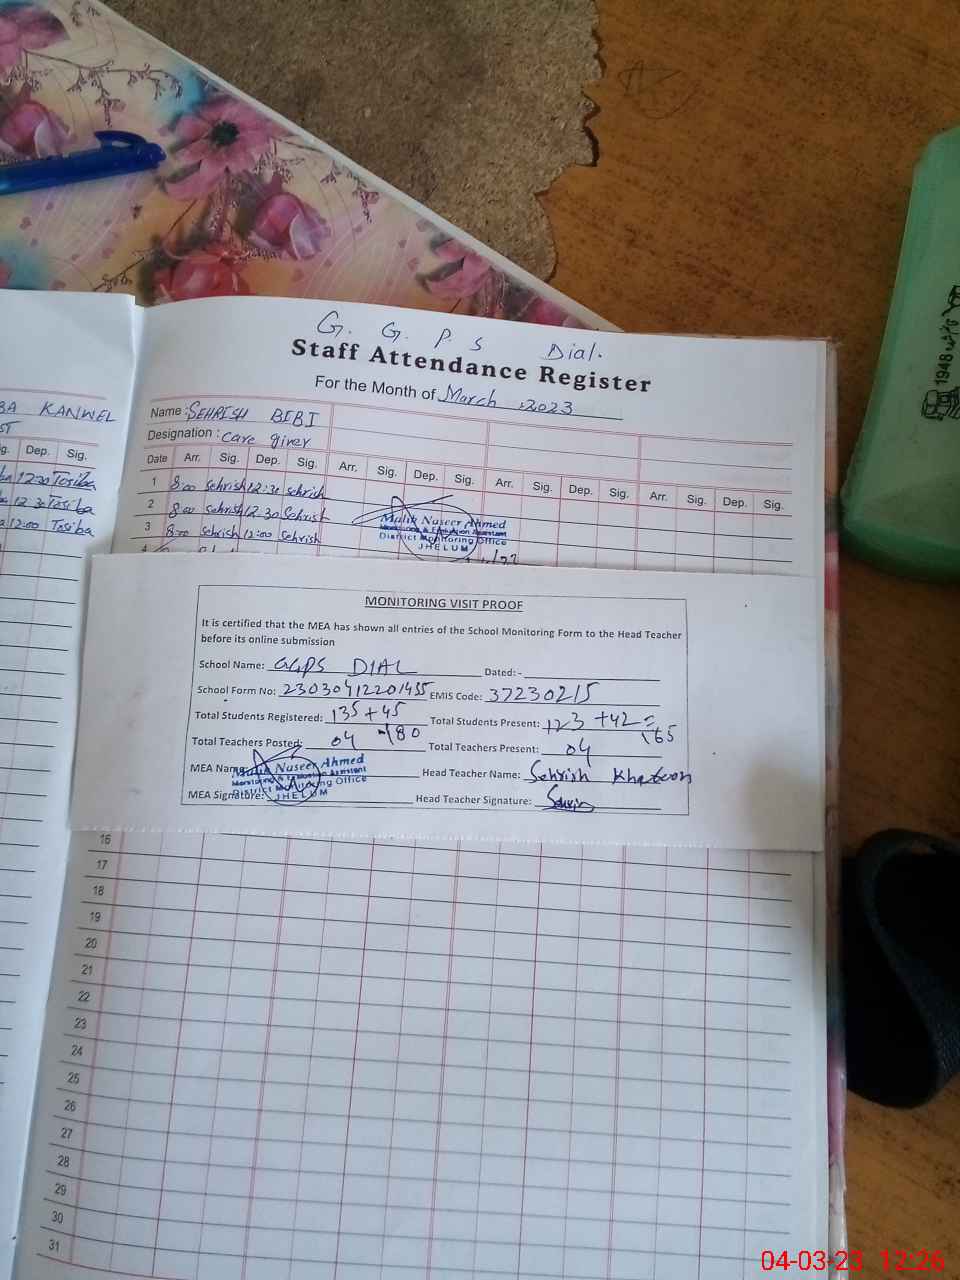 G. G. P. S Dial.
Staff Attendance Register
For the Month of March ,2023
BA KANWEL
ST
Name : SEHRISH BIBI
Designation : Care giver
g. Dep. Sig.
Date Arr. Sig. Dep. Sig. Arr. Sig. Dep. Sig. Arr. Sig. Dep. Sig. Arr. Sig. Dep. Sig.
12:30 Tosiba
1 8:00 Sehrish 12:30 Sehrish
12:30 Tosiba
2 8:00 Sehrish 12:30 Sehrish
12:00 Tosiba
3 8:00 Sehrish 12:00 Sehrish
4
Malik Naseer Ahmed
Monitoring & Evaluation Assistant
District Monitoring Office
JHELUM
MONITORING VISIT PROOF
It is certified that the MEA has shown all entries of the School Monitoring Form to the Head Teacher
before its online submission
School Name: GGPS DIAL Dated: -
School Form No: 23030412201455 EMIS Code: 37230215
Total Students Registered: 135+45 Total Students Present: 123 +42=
=180 165
Total Teachers Posted: 04 Total Teachers Present: 04
MEA Name: Head Teacher Name: Sehrish Khatoon
Malik Naseer Ahmed
Monitoring & Evaluation Assistant
District Monitoring Office
JHELUM
MEA Signature: Head Teacher Signature:
16
17
18
19
20
21
22
23
24
25
26
27
28
29
30
31
1948
04-03-23 12:26